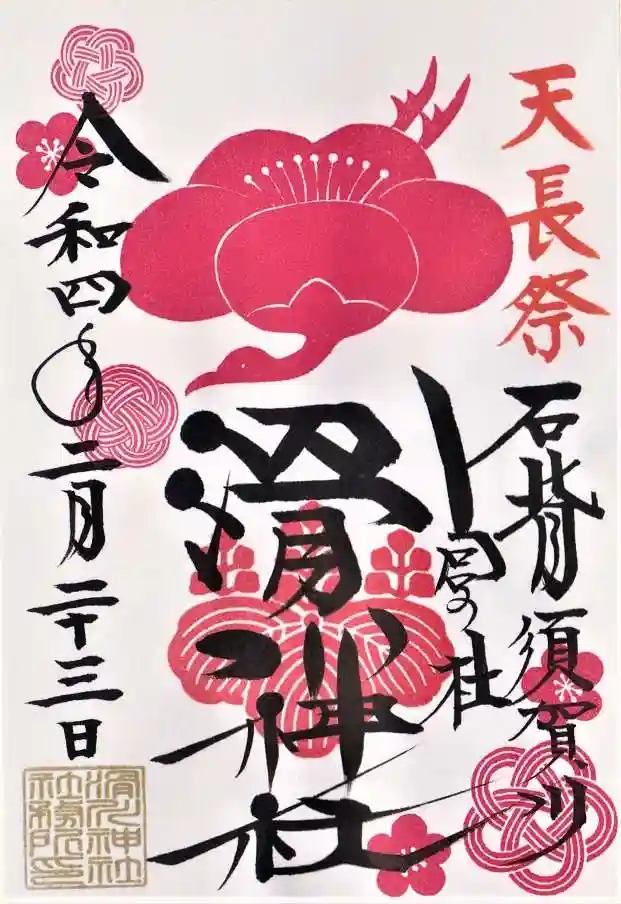 天長祭
石背 須賀川
宮の杜
滑川神社
令和四年二月二十三日
滑川神社
社務所印